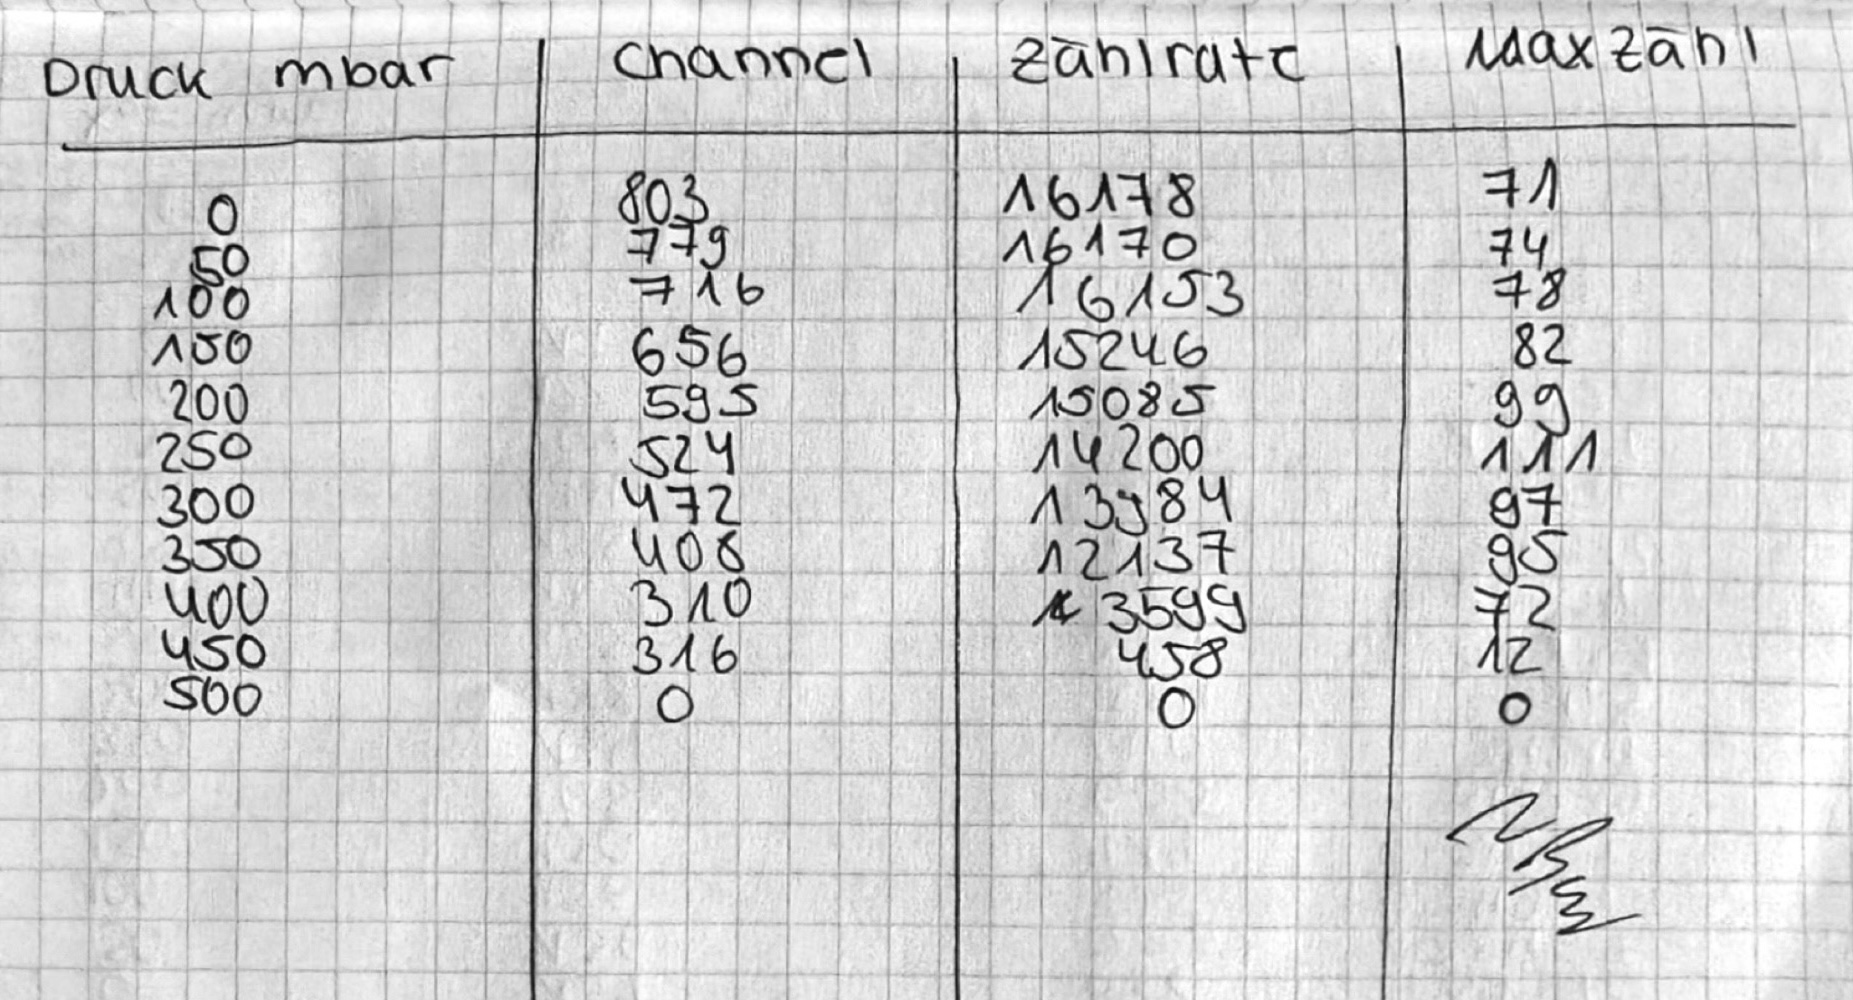 Druck mbar Channel Zählrate Maxzähl
0 803 16178 71
50 779 16170 74
100 716 16153 78
150 656 15246 82
200 595 15085 99
250 524 14200 111
300 472 13984 97
350 408 12137 95
400 310 3599 72
450 316 458 12
500 0 0 0